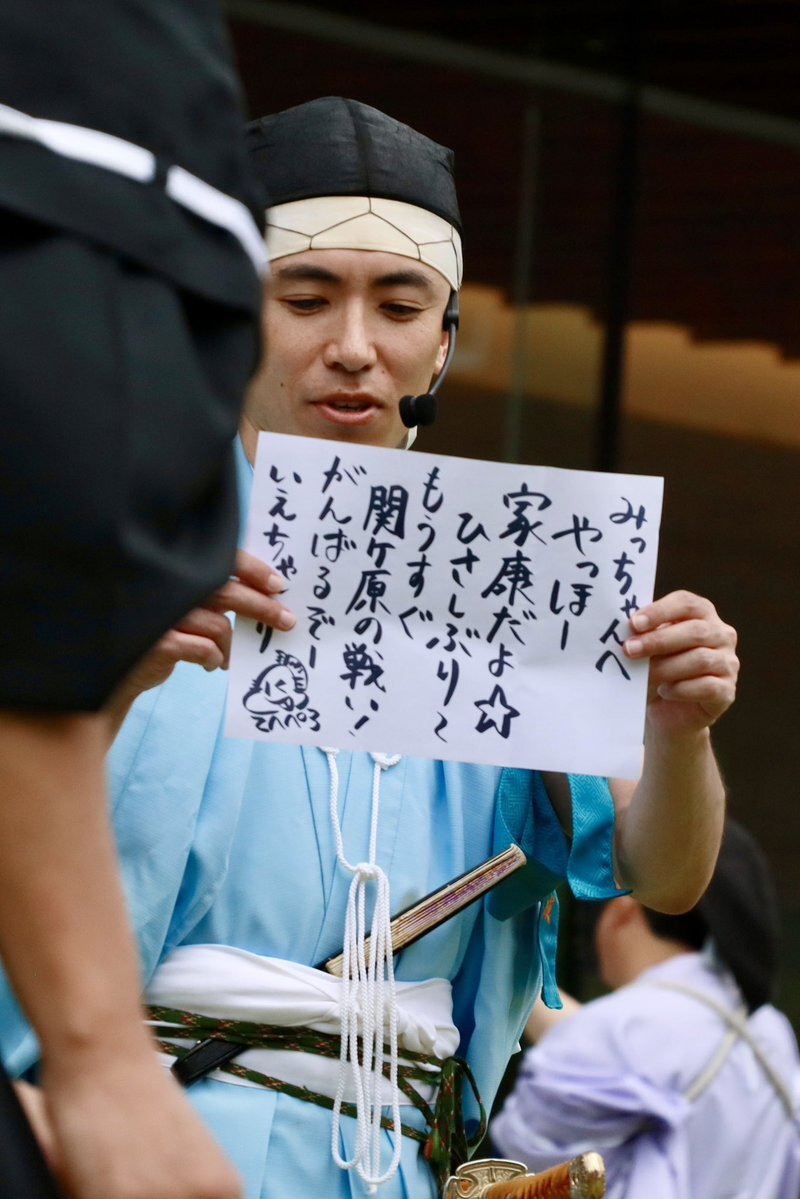 みっちゃんへ
やっほー
家康だよ☆
ひさしぶり〜
もうすぐ
関ケ原の戦い!
がんばるぞー
いえちゃんり
てへぺろ